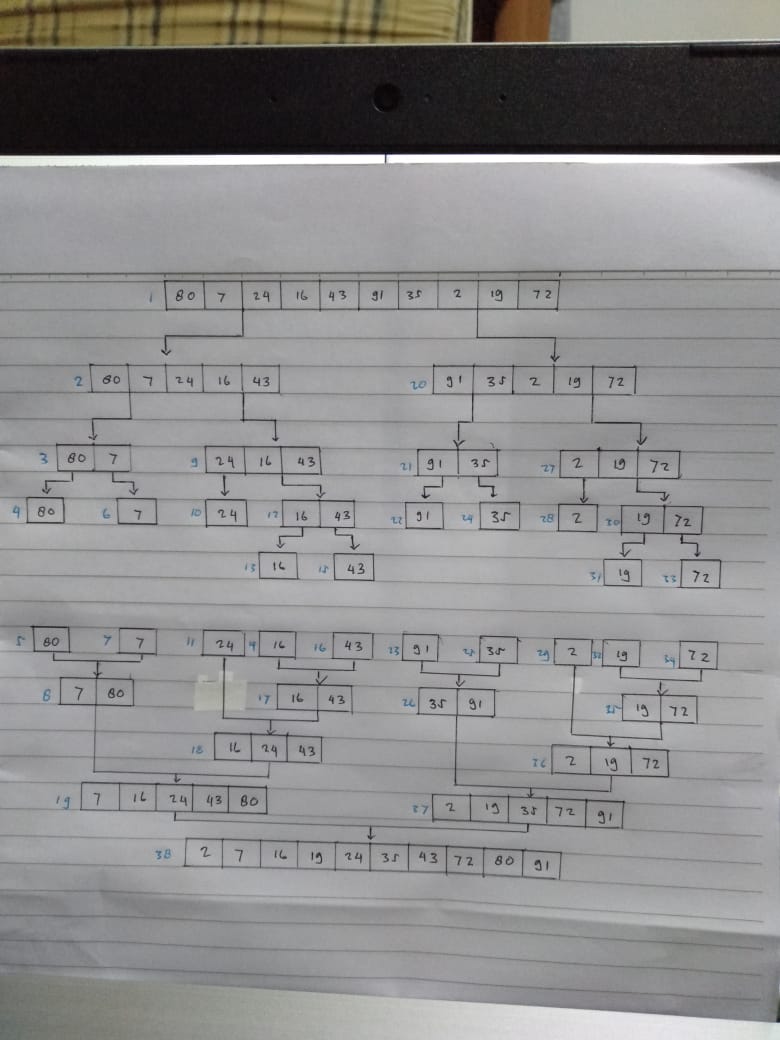 1 80 7 24 16 43 91 35 2 19 72
2 80 7 24 16 43 20 91 35 2 19 72
3 80 7 9 24 16 43 21 91 35 27 2 19 72
4 80 6 7 10 24 12 16 43 22 91 24 35 28 2 30 19 72
13 16 15 43 31 19 33 72
5 80 7 7 11 24 16 16 43 23 91 25 35 29 2 32 19 34 72
8 7 80 17 16 43 26 35 91 35 19 72
18 16 24 43 36 2 19 72
19 7 16 24 43 80 37 2 19 35 72 91
38 2 7 16 19 24 35 43 72 80 91